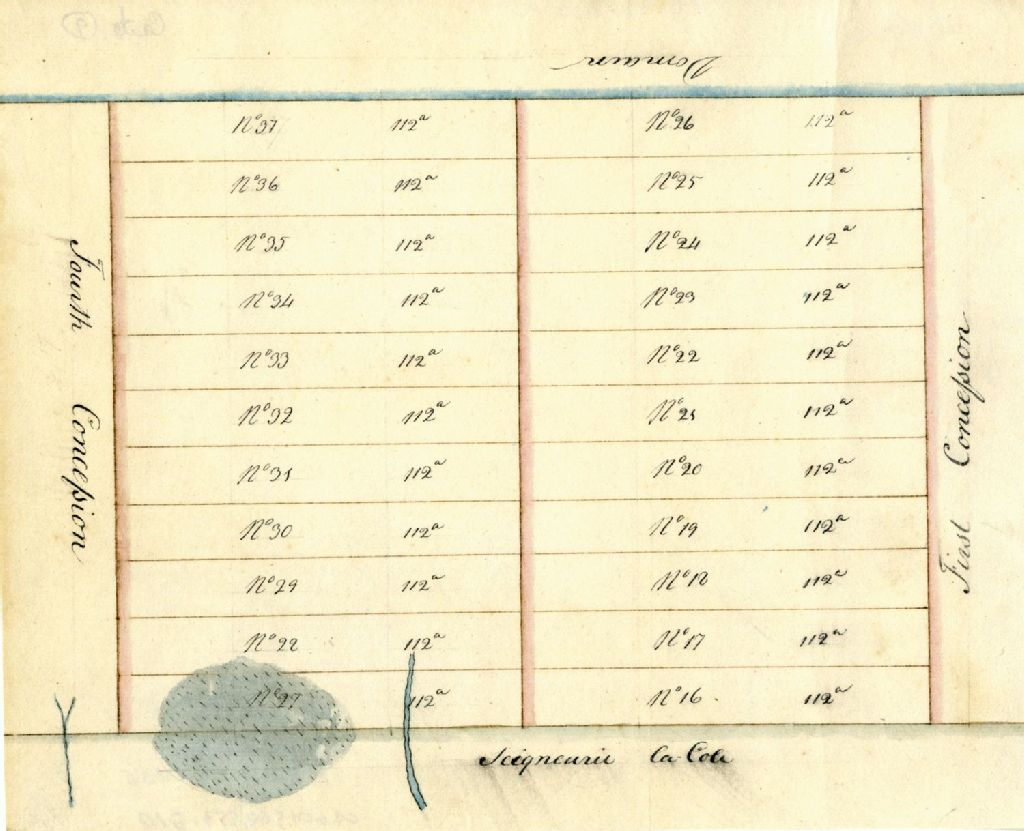 Domain
N°37 112a N°26 112a
N°36 112a N°25 112a
N°35 112a N°24 112a
N°34 112a N°23 112a
N°33 112a N°22 112a
N°32 112a N°21 112a
N°31 112a N°20 112a
N°30 112a N°19 112a
N°29 112a N°18 112a
N°28 112a N°17 112a
N°27 112a N°16 112a
Fourth Concession
First Concession
Seigneurie La Cole